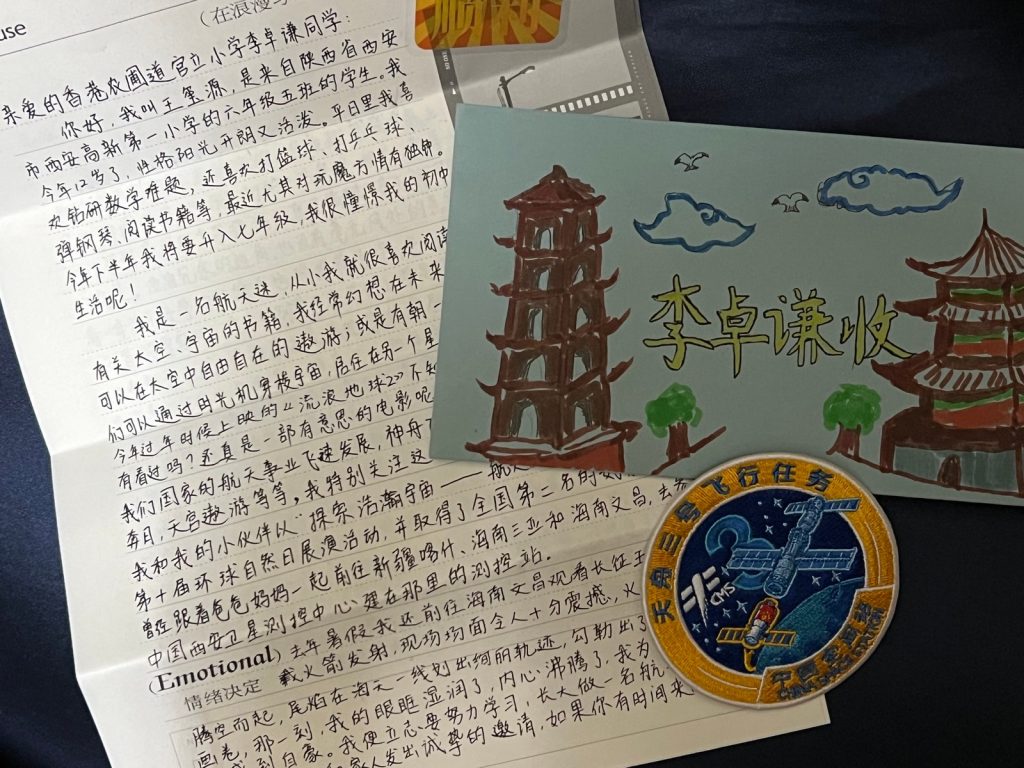 use
(在浪漫
亲爱的香港农圃道官立小学李卓谦同学:
你好,我叫王笠源,是来自陕西省西安
市西安高新第一小学的六年级五班的学生。我
今年12岁了,性格阳光开朗又活泼。平日里我喜
欢钻研数学难题,还喜欢打篮球、打乒乓球、
弹钢琴、阅读书籍等,最近尤其对玩魔方情有独钟。
今年下半年我将要升入七年级,我很憧憬我的初中
生活呢!
我是一名航天迷,从小我就很喜欢阅读
有关太空、宇宙的书籍,我经常幻想在未来
可以在太空中自由自在的遨游;或是有朝一
们可以通过时光机穿梭宇宙,居住在另一个星
今年过年时候上映的《流浪地球2》不知
有看过吗?还真是一部有意思的电影呢
我们国家的航天事业飞速发展,神舟
奔月,天宫遨游等等。我特别关注这
我和我的小伙伴以“探索浩瀚宇宙——航
第十届环球自然日展演活动,并取得了全国第二名的
曾经跟着爸爸妈妈一起前往新疆喀什、海南三亚和海南文昌,去
中国西安卫星测控中心建在那里的测控站。
(Emotional)
情绪决定
去年暑假我还前往海南文昌观看长征五
载火箭发射,现场场面令人十分震撼,火
腾空而起,尾焰在海天一线划出绚丽轨迹,勾勒出了
画卷,那一刻,我的眼眶湿润了,内心沸腾了,我为
感到自豪。我便立志要努力学习,长大做一名航
家人发出诚挚的邀请,如果你有时间来
李卓谦收
天舟三号飞行任务
CMS
中国空间站
CHINA SPACE STATION